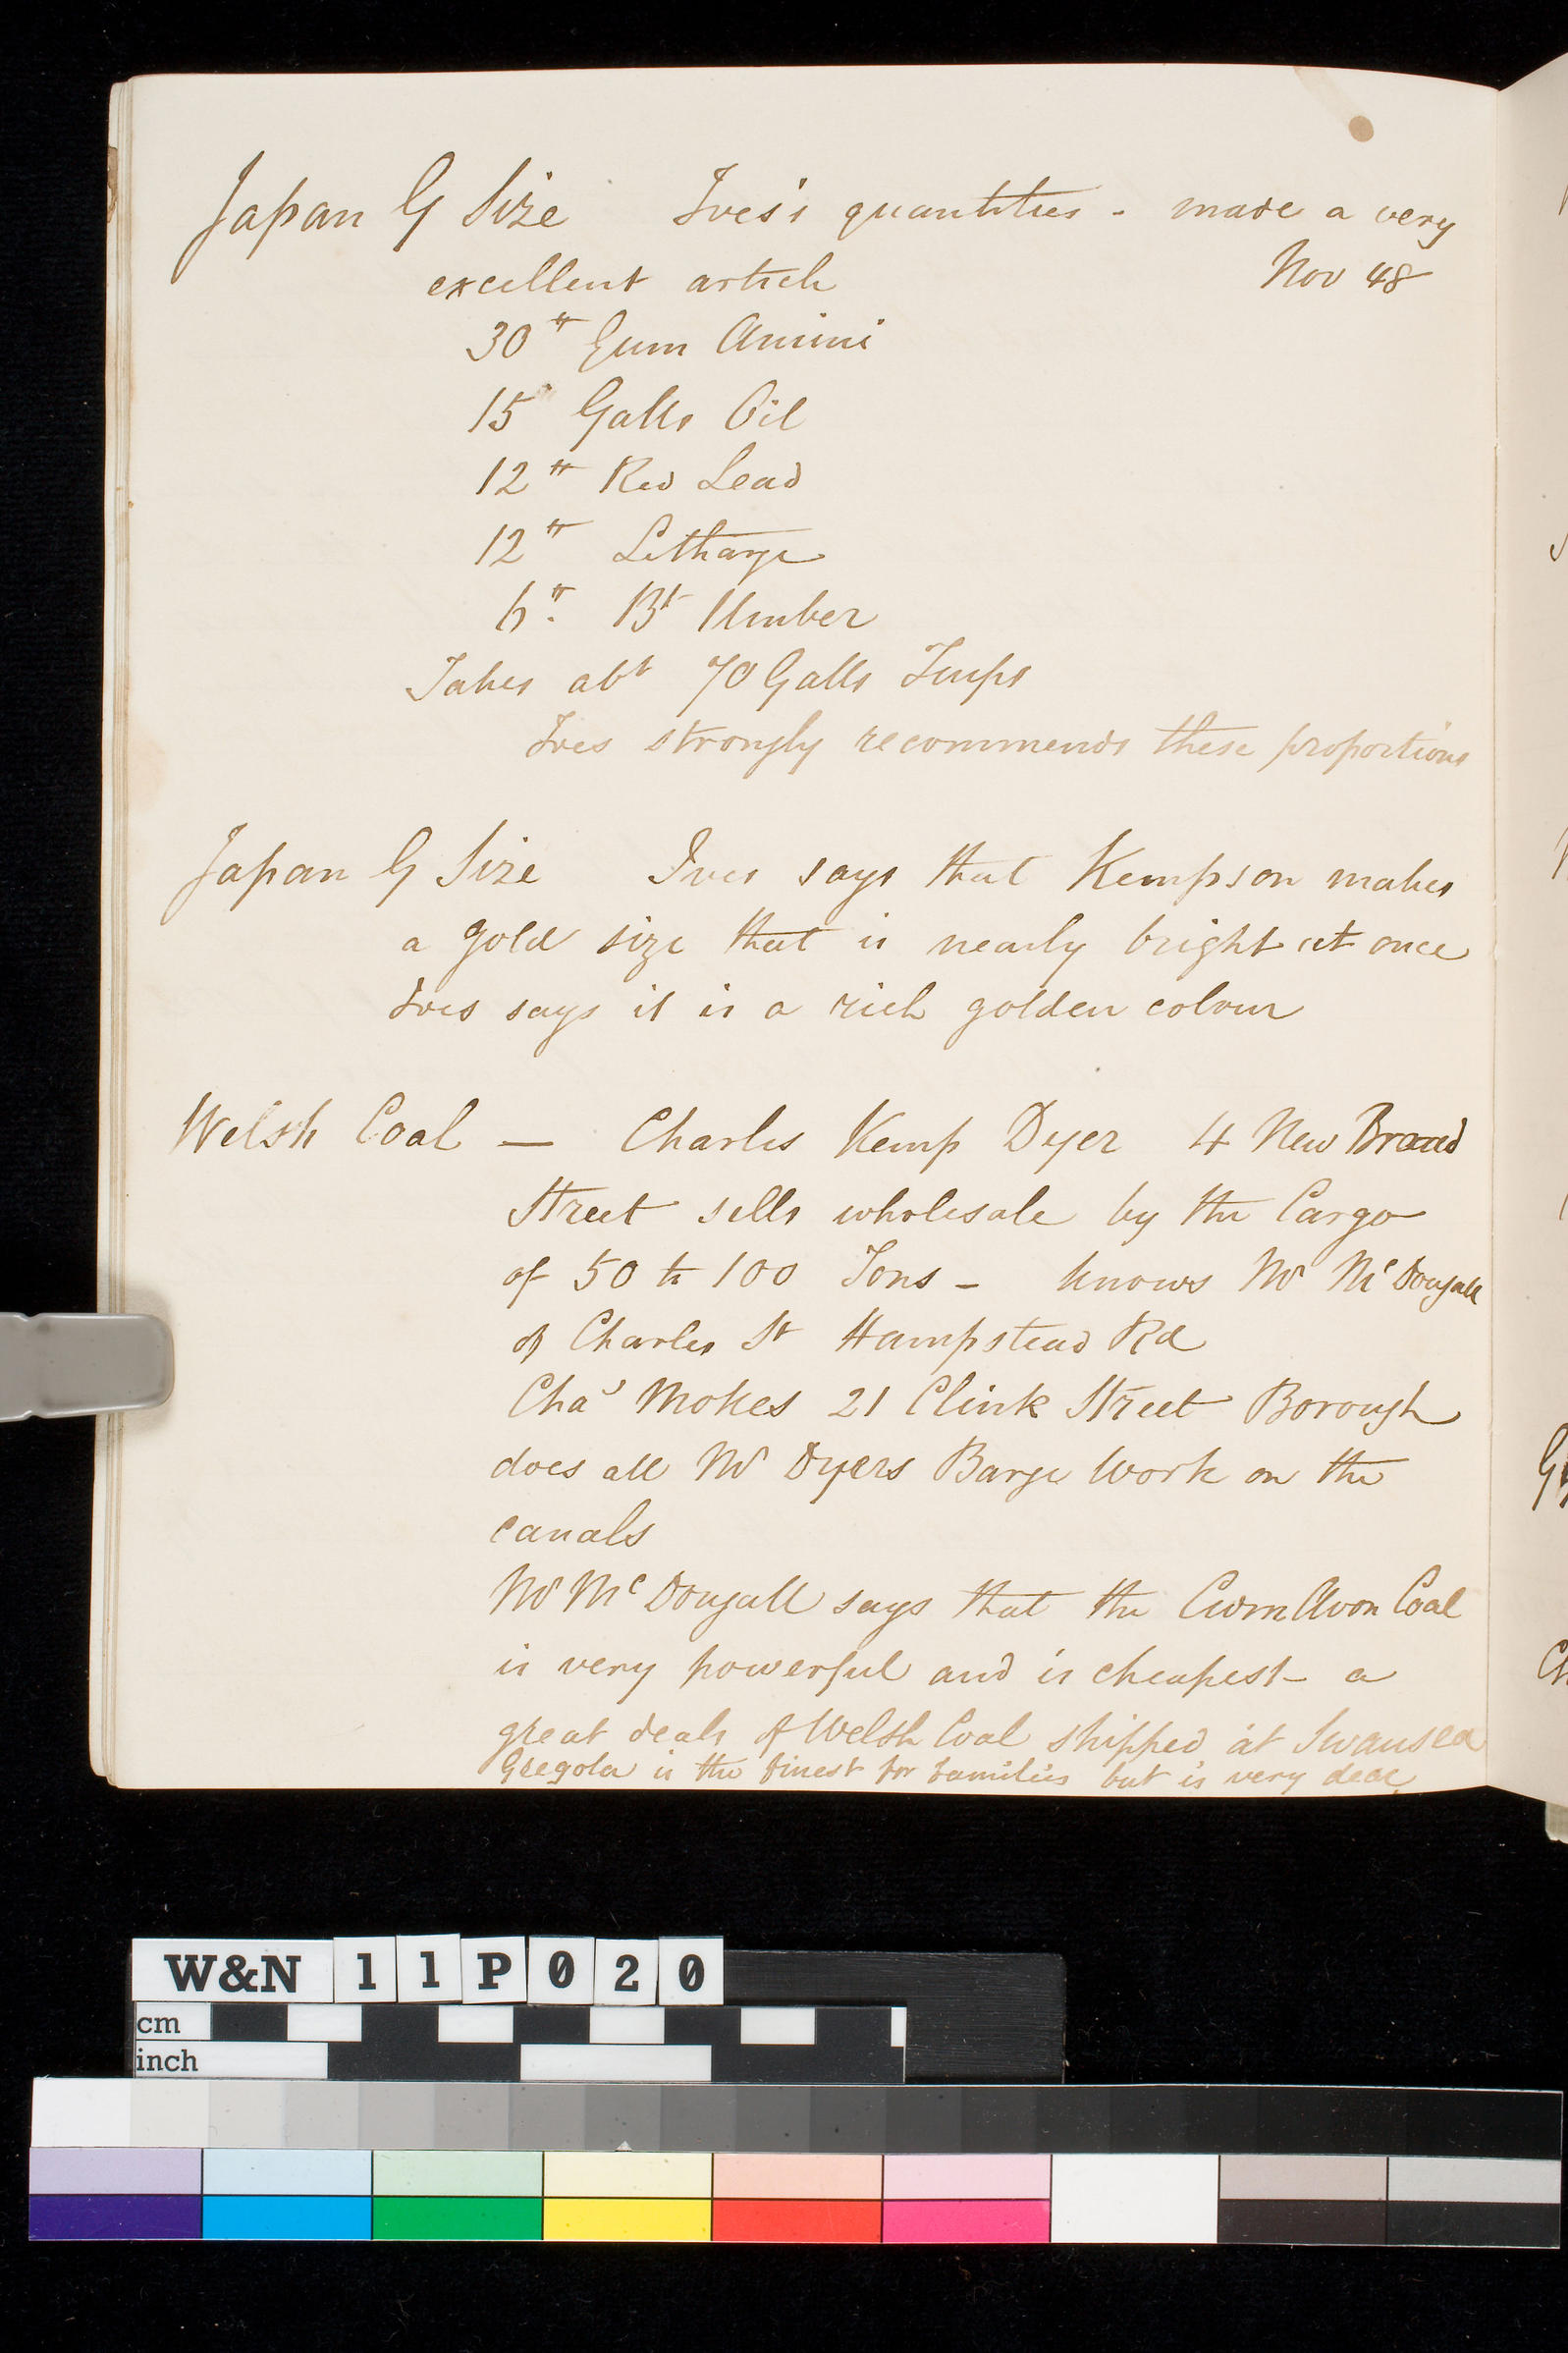 Japan G Size Ives's quantities - made a very
excellent article Nov 48
30 ℔ Gum Animi
15 Galls Oil
12 ℔ Red Lead
12 ℔ Litharge
6 ℔. Bt Umber
Takes abt 70 Galls Turps
Ives strongly recommends these proportions
Japan G Size Ives says that Kempson makes
a gold size that is nearly bright at once
Ives says it is a rich golden colour
Welsh Coal — Charles Kemp Dyer 4 New Broad
Street sells wholesale by the Cargo
of 50 to 100 Tons - knows Mr McDougall
of Charles St Hampstead Rd
Chas Mokes 21 Clink Street Borough
does all Mr Dyers Barge Work on the
canals
Mr McDougall says that the Cwm Avon Coal
is very powerful and is cheapest - a
great deals of Welsh Coal shipped at Swansea
Gregola is the finest for families but is very dear
W&N 11P020
cm
inch